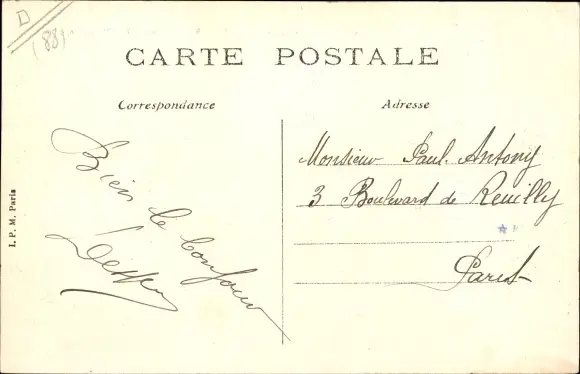 D
(88)
CARTE POSTALE
Correspondance
Adresse
Bien le bonjour
Monsieur Paul. Antony
3 Boulevard de Reuilly
Paris
I. P. M. Paris